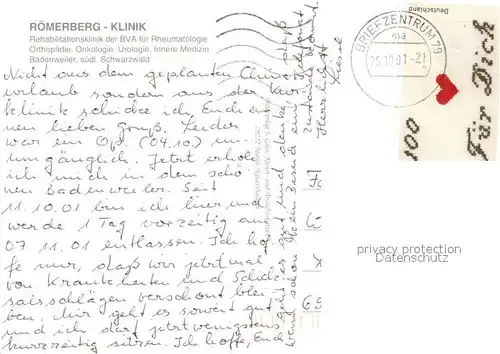 RÖMERBERG - KLINIK
Rehabilitationsklinik der BVA für Rheumatologie
Orthopädie, Onkologie, Urologie, Innere Medizin
Badenweiler, südl. Schwarzwald
Nicht aus dem geplanten China-
urlaub sondern aus der Kur
klinik schicke ich Euch ei
nen lieben Gruß. Leider
war ein Op. (04.10.) un-
umgänglich. Jetzt erhole
ich mich in dem schö
nen Badenweiler. Seit
11.10.01 bin ich hier und
werde 1 Tag vorzeitig am
07.11.01 entlassen. Ich hof
fe nur, daß wir jetzt mal
von Krankheiten und Schick
salsschlägen verschont blei
ben. Mir geht es soweit gut
und ich darf jetzt wenigstens
kurzzeitig sitzen. Ich hoffe, Euch
geht es gut und
Herzlichst
BRIEFZENTRUM 79
ma
25.10.01-21
Deutschland
100
Für Dich
privacy protection
Datenschutz